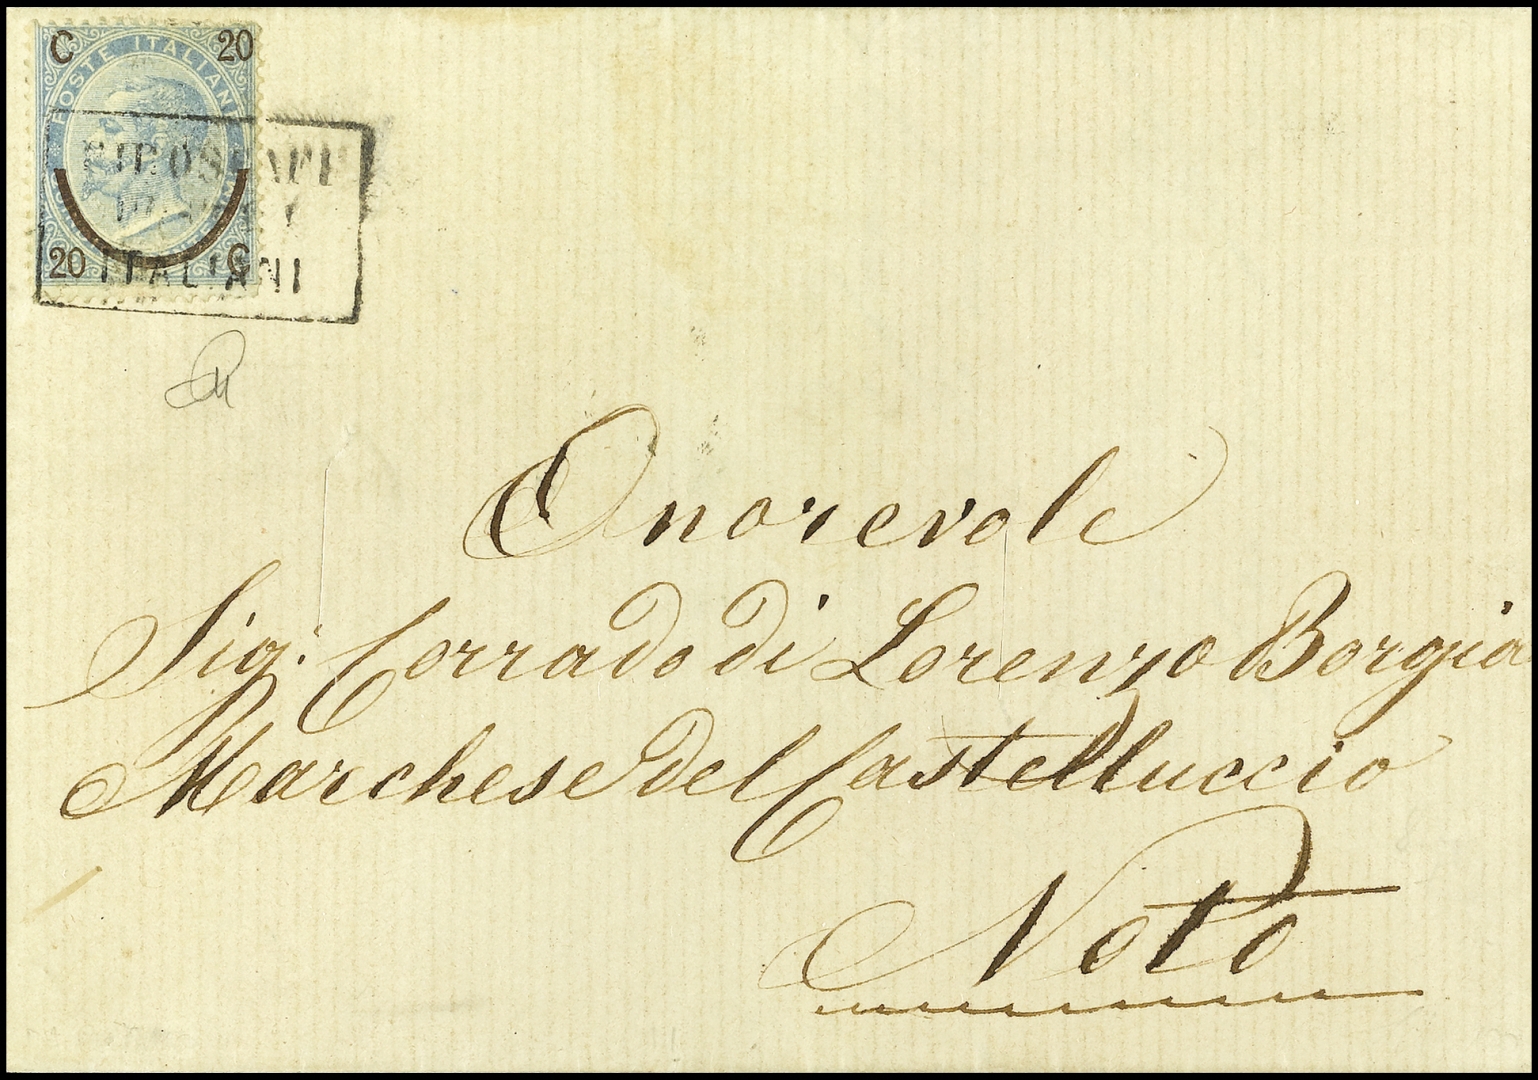 C 20
POSTE ITALIANE
PIROSCAFI
POSTALI
ITALIANI
20 C
Onorevole
Sig: Corrado di Lorenzo Borgia
Marchese del Castelluccio
Noto